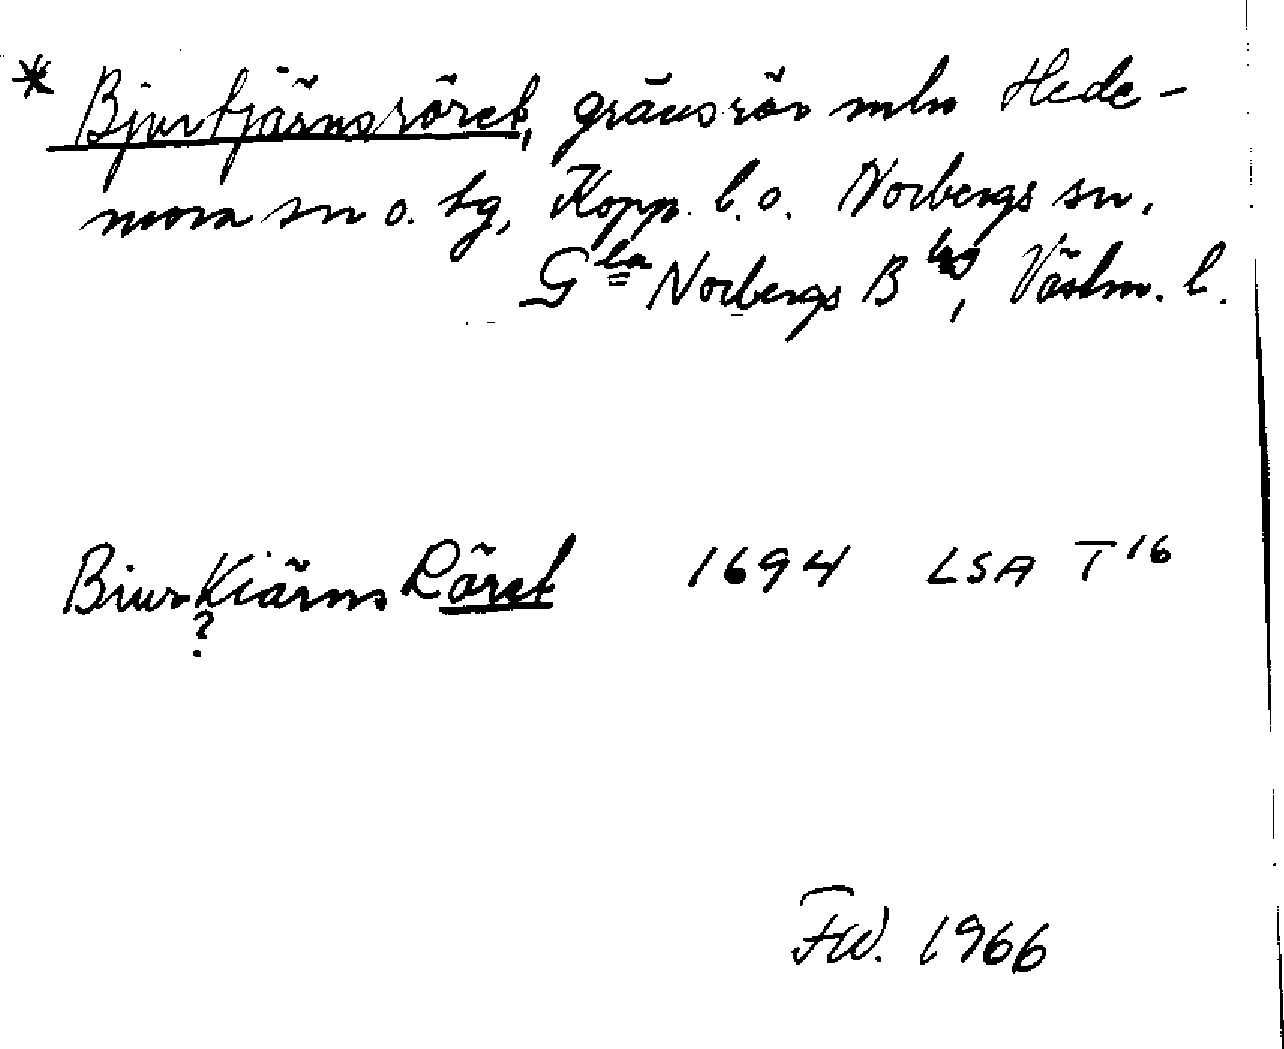 * Bjurtjärnsröret, gränsrör mln Hede-
mora sn o. tg, Kopp. l. o. Norbergs sn,
Gla Norbergs Blg, Västm. l.
BiurKiärns Röret 1694 LSA T16
?
FW. 1966